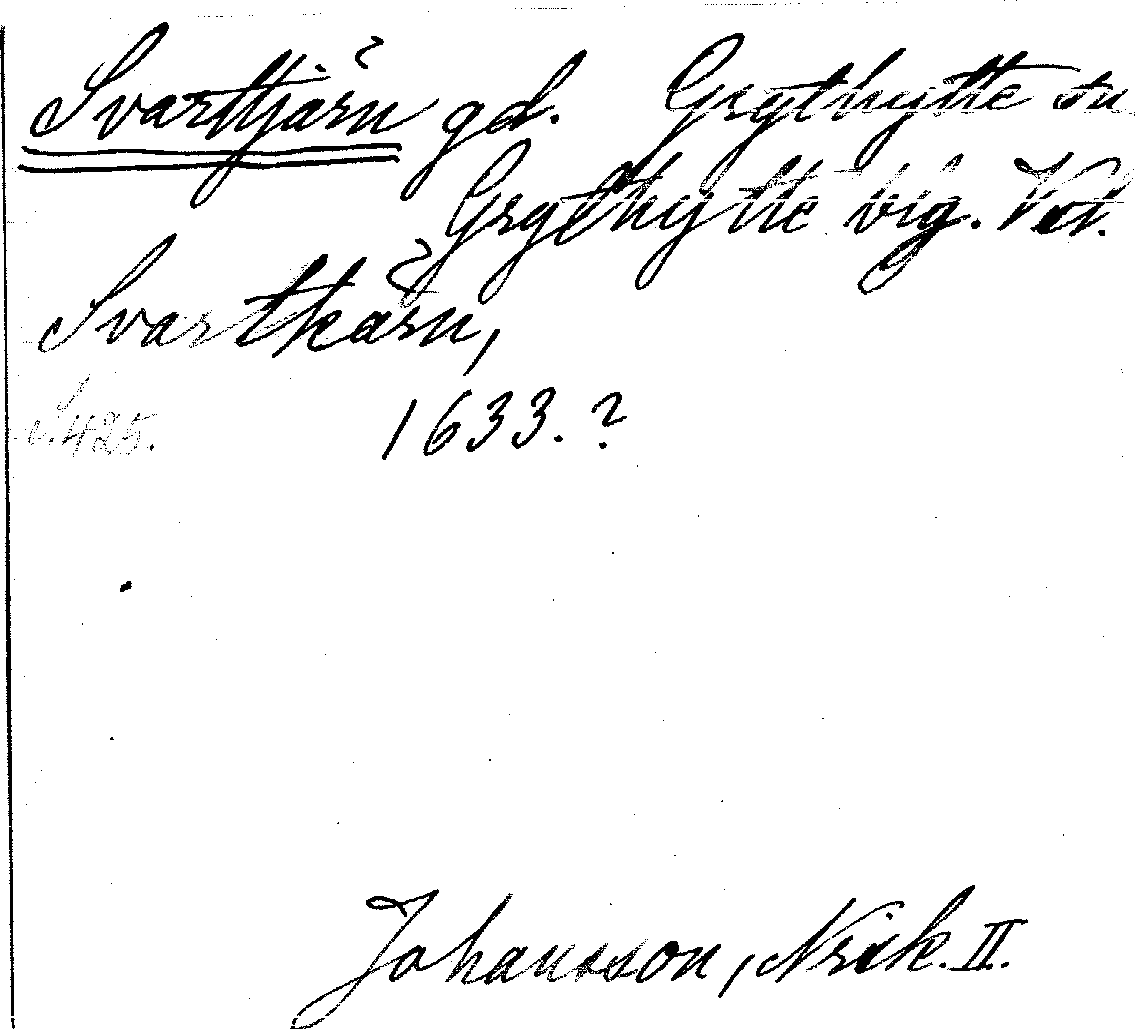 Svarttjärn gd. Grythytte sn.
Grythytte big. Vstl.
Svartkärn,
s. 425. 1633. ?
Johansson, Nrik. II.